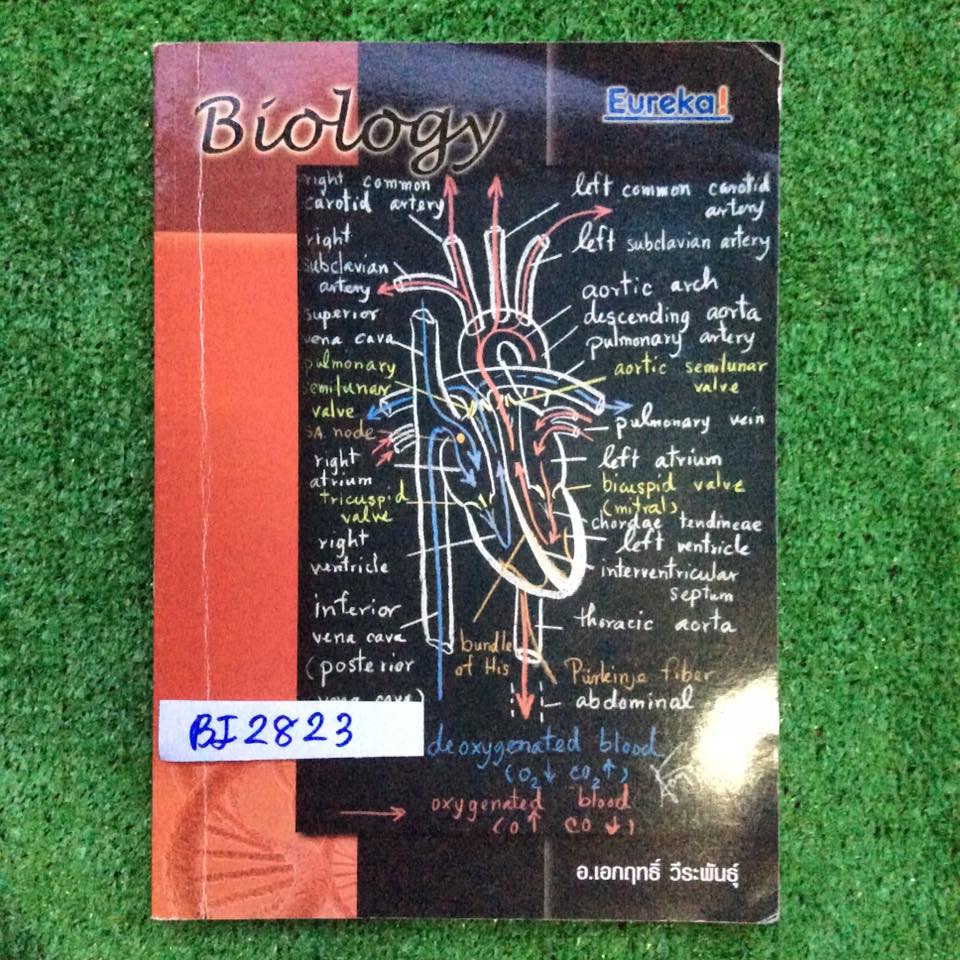 Biology
Eureka!
right common
carotid artery
right
subclavian
artery
superior
vena cava
pulmonary
semilunar
valve
S.A. node
right
atrium
tricuspid
valve
right
ventricle
inferior
vena cava
(posterior
vena cava)
left common carotid
artery
left subclavian artery
aortic arch
descending aorta
pulmonary artery
aortic semilunar
valve
pulmonary vein
left atrium
bicuspid valve
(mitral)
chordae tendineae
left ventricle
interventricular
septum
thoracic aorta
bundle
of His
Purkinje fiber
abdominal
BI2823
deoxygenated blood
(O2↓ CO2↑)
oxygenated blood
(O↑ CO↓)
อ.เอกฤทธิ์ วีระพันธุ์